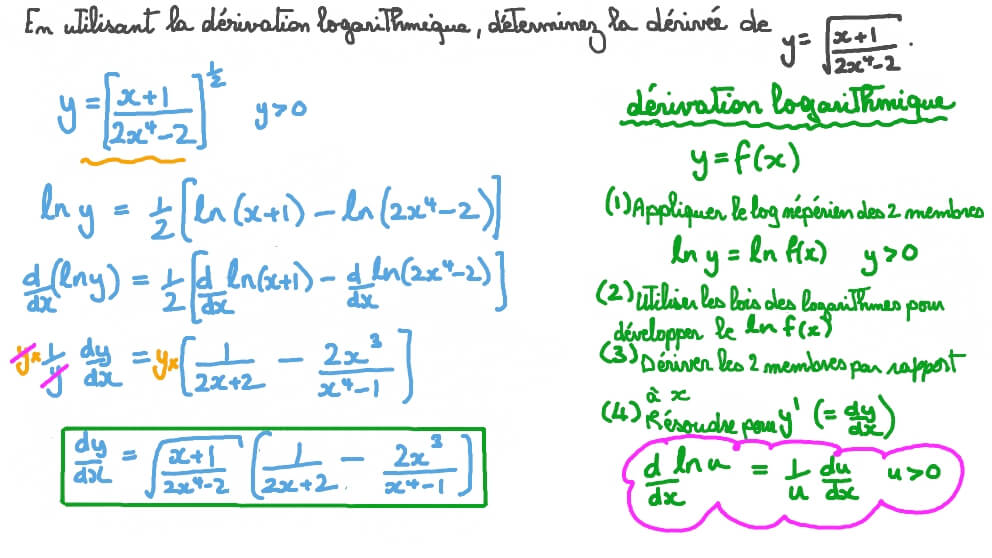 En utilisant la dérivation logarithmique, déterminez la dérivée de y = √((x+1)/(2x⁴-2)).
y = [(x+1)/(2x⁴-2)]^(1/2) y>0
ln y = 1/2 [ln(x+1) - ln(2x⁴-2)]
d/dx (ln y) = 1/2 [d/dx ln(x+1) - d/dx ln(2x⁴-2)]
y× 1/y dy/dx = y× [1/(2x+2) - 2x³/(x⁴-1)]
dy/dx = √((x+1)/(2x⁴-2)) (1/(2x+2) - 2x³/(x⁴-1))
dérivation logarithmique
y = f(x)
(1) Appliquer le log népérien des 2 membres
ln y = ln f(x) y>0
(2) Utiliser les lois des logarithmes pour
développer le ln f(x)
(3) Dériver les 2 membres par rapport
à x
(4) Résoudre pour y' (= dy/dx)
d/dx ln u = 1/u du/dx u>0